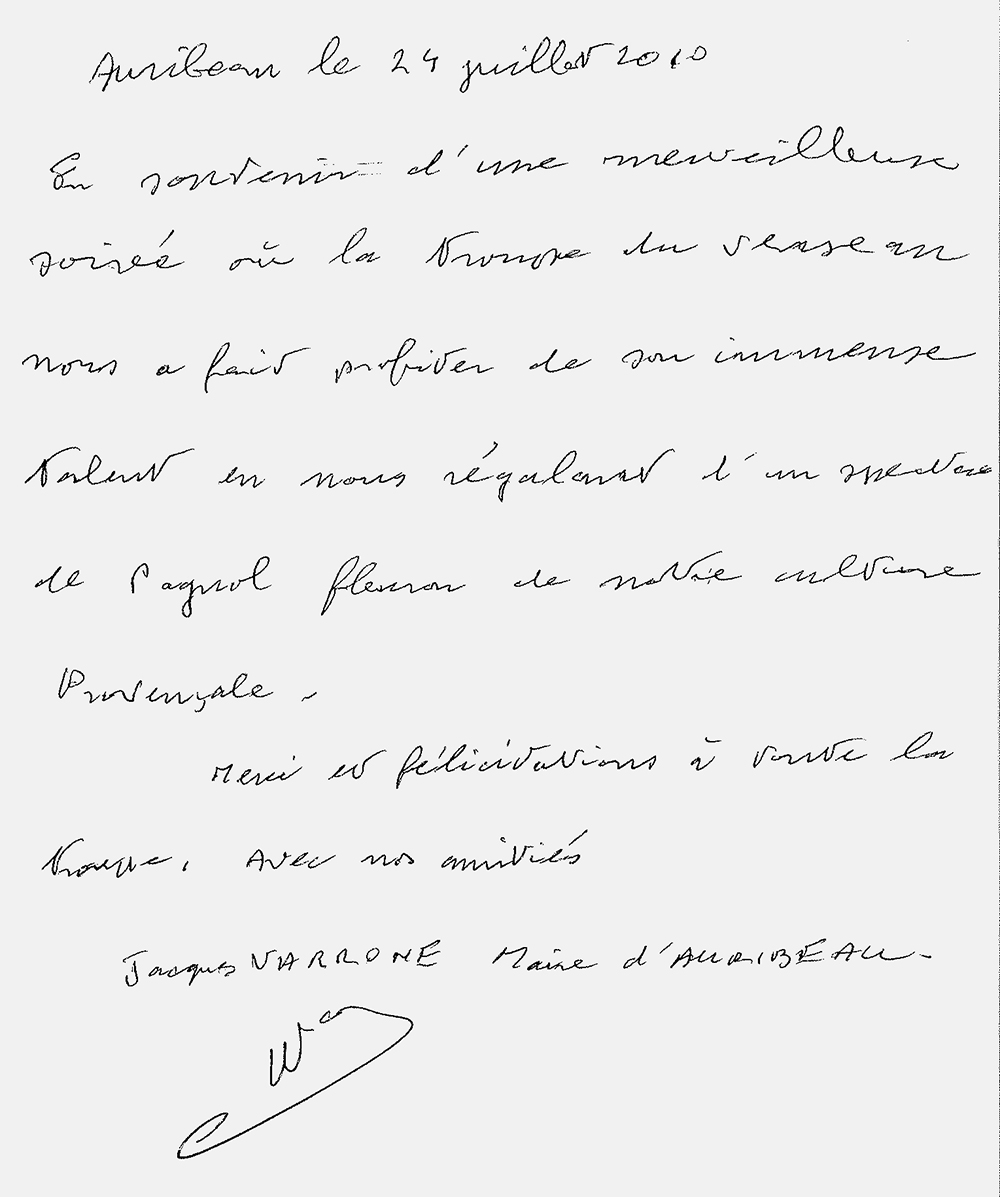 Auribeau le 24 juillet 2010
En souvenir d'une merveilleuse
soirée où la troupe du
nous a fait profiter de son immense
talent en nous régalant d'un spectacle
de Pagnol fleuron de notre culture
Provençale.
Merci et félicitations à toute la
troupe. Avec nos amitiés
Jacques VARRONE Maire d'AURIBEAU-